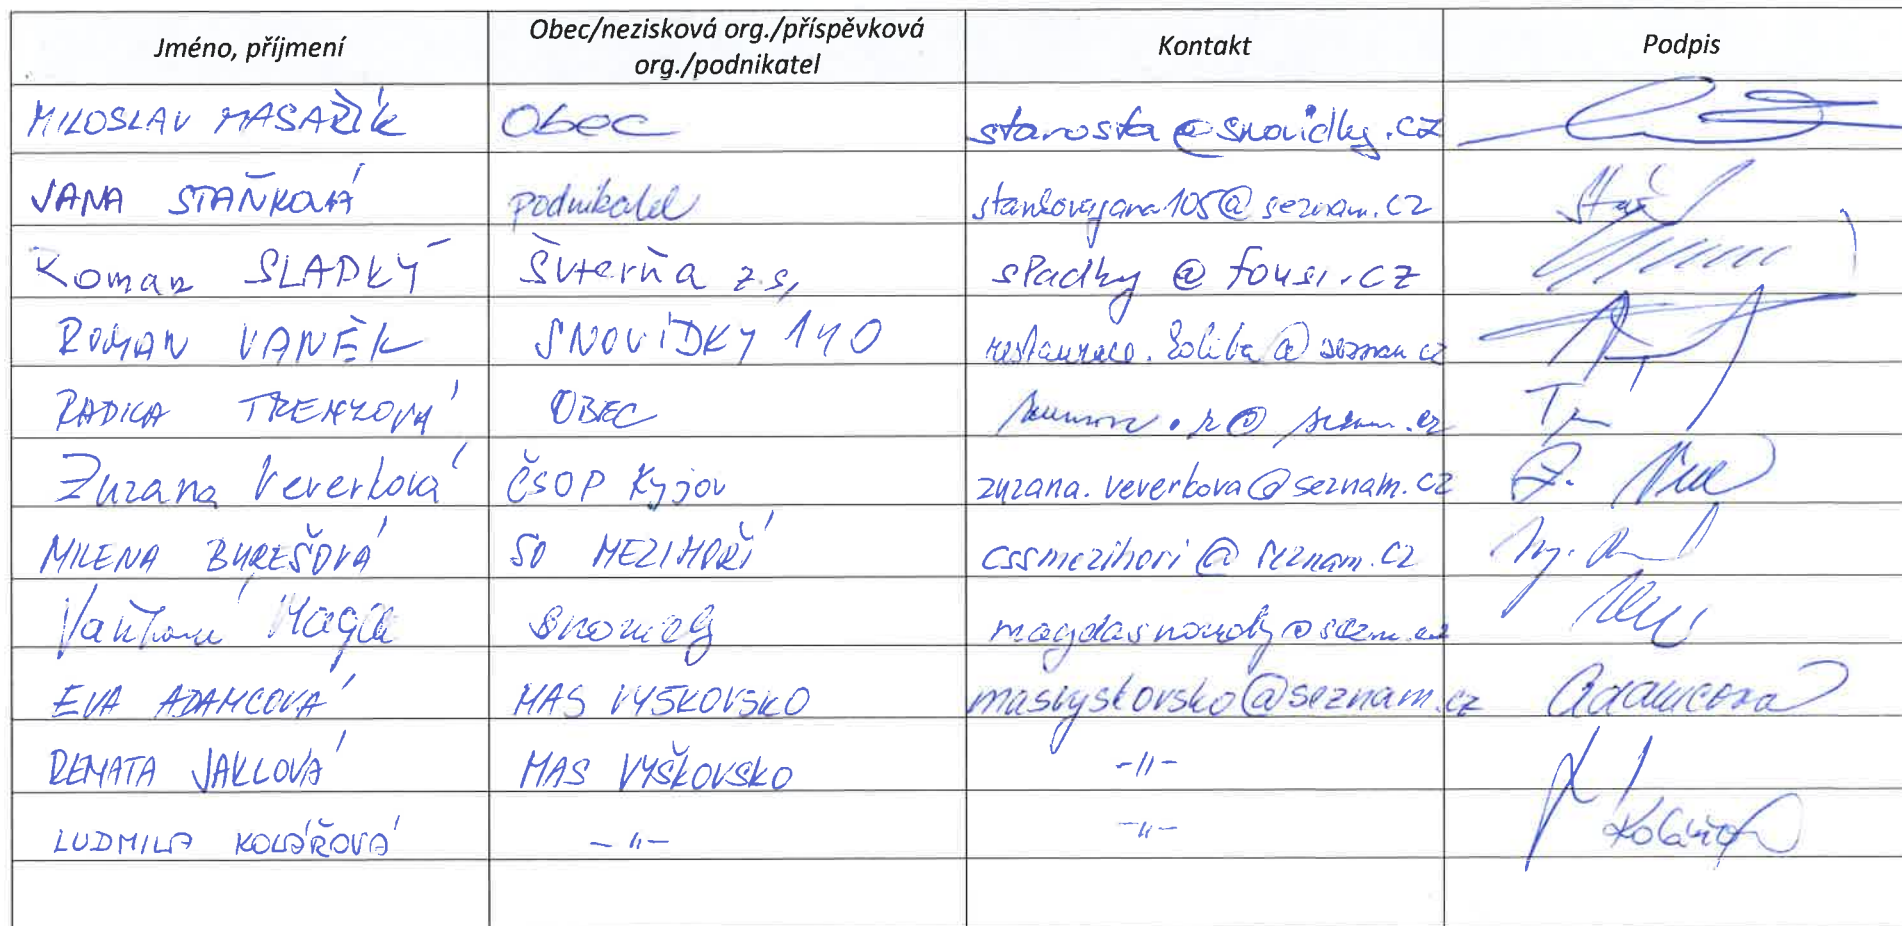 Jméno, příjmení Obec/nezisková org./příspěvková org./podnikatel Kontakt Podpis
MILOSLAV MASAŘÍK Obec starosta@snovidky.cz
JANA STAŇKOVÁ podnikatel stankovajana105@seznam.cz
Roman SLADKÝ Švterňa z.s, sladky@fousi.cz
ROMAN VANĚK SNOVÍDKY 140 restaurace. @seznam.cz
RADKA OBEC .r@seznam.cz
Zuzana Veverková ČSOP Kyjov zuzana.veverkova@seznam.cz
MILENA BUREŠOVÁ SO MEZIHOŘÍ cssmezihori@seznam.cz
Magda
EVA ADAMCOVÁ MAS VYŠKOVSKO masvyskovsko@seznam.cz Adamcova
RENATA JAKLOVÁ MAS VYŠKOVSKO -11-
LUDMILA KOLÁŘOVÁ -11- -11- Kolářov